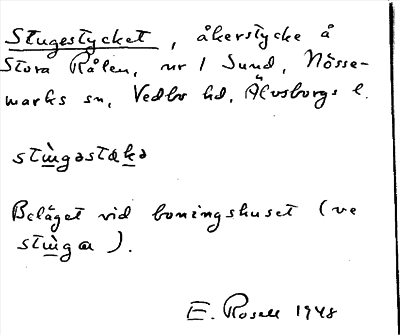 Stugestycket, åkerstycke å
Stora Rålen, nr 1 Sund, Nösse-
marks sn, Vedbo hd, Älvsborgs l.
stùgəstəkə
Beläget vid boningshuset (ve
stùga).
E. Rosell 1948